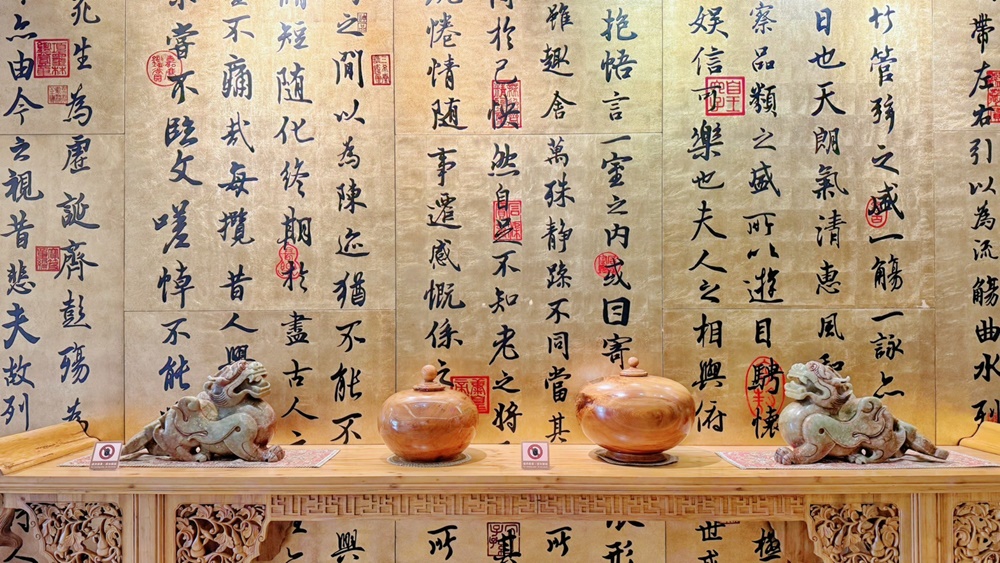 帶左右引以為流觴曲水列
竹管弦之盛一觴一詠亦
日也天朗氣清惠風和
察品類之盛所以遊目騁懷
娱信可樂也夫人之相與俯
世或
抱悟言一室之內或因寄
形
雖趣舍萬殊靜躁不同當其
所
於己快然自足不知老之將
其
惓情隨事遷感慨係之
所
之閒以為陳迹猶不能不
興
短隨化終期於盡古人云
不痛哉每攬昔人興
嘗不臨文嗟悼不能
死生為虛誕齊彭殤為
亦由今之視昔悲夫故列